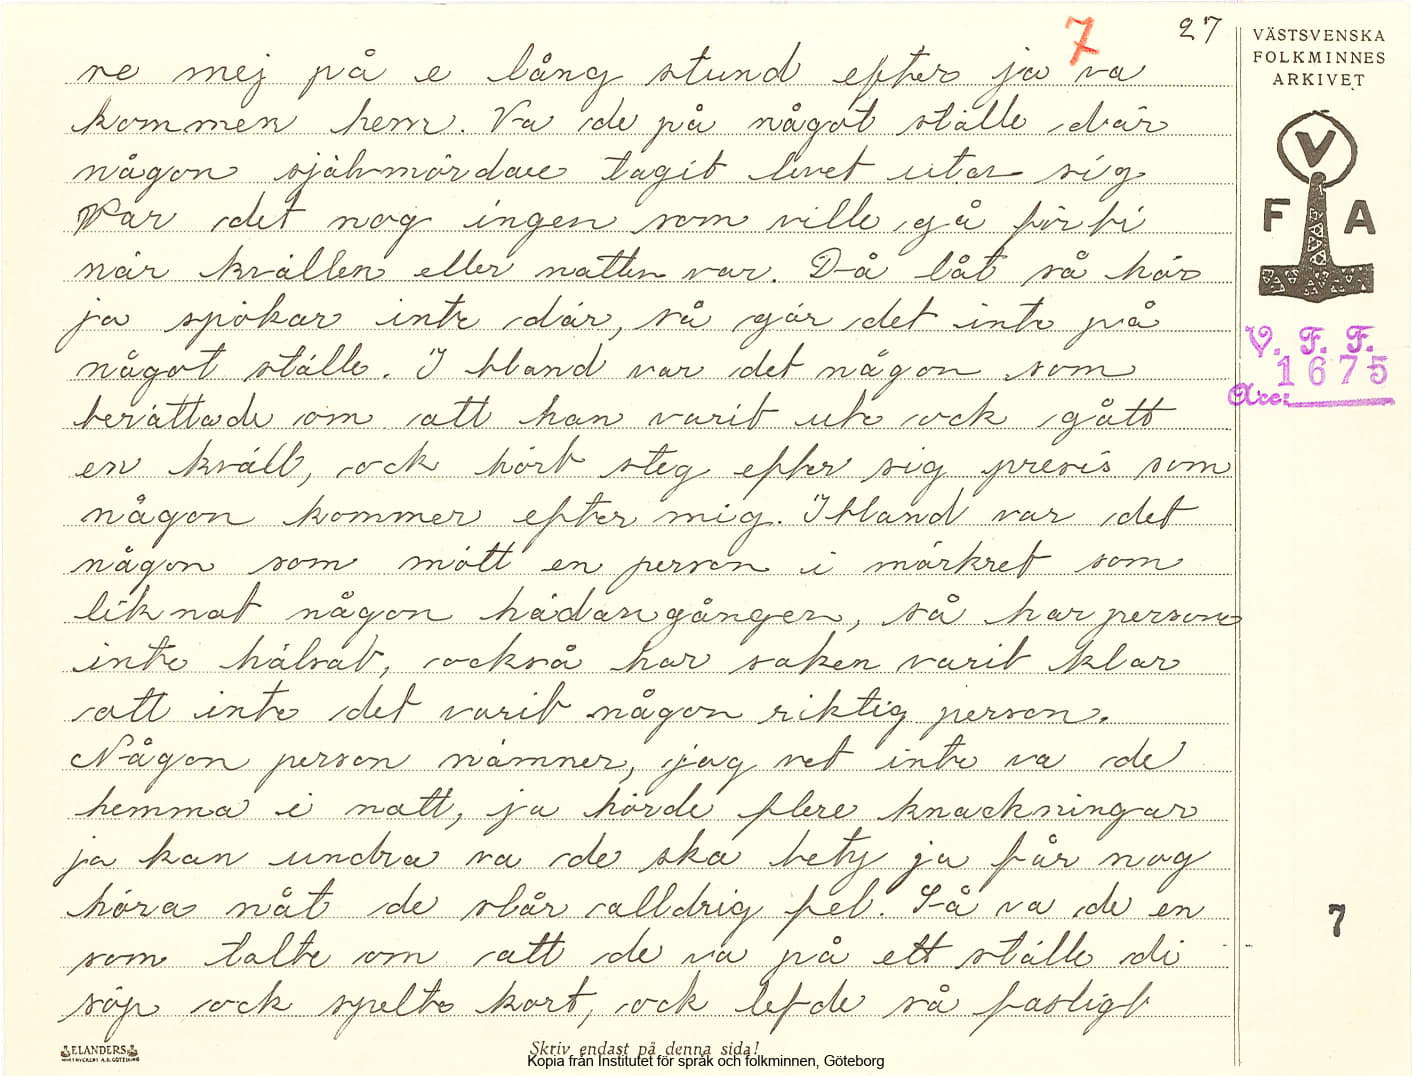 7
27
VÄSTSVENSKA
FOLKMINNES
ARKIVET
V
F A
V. F. F.
1675
Acc:
re mej på e lång stund efter ja va
kommen hem. Va de på något ställe där
någon självmördare tagit livet utav sig
Var det nog ingen som ville gå förbi
när kvällen eller natten var. Då låt så här
ja spökar inte där, så gör det inte på
något ställe. I bland var det någon som
berättade om att han varit ute ock gått
en kväll, ock hört steg efter sig presis som
någon kommer efter mig. Ibland var det
någon som mött en person i mörkret som
liknat någon hädangången, så har persone
inte hälsat, också har saken varit klar
att inte det varit någon riktig person.
Någon person nämner, jag vet inte va de
hemma i natt, ja hörde flere knackningar
ja kan undra va de ska bety ja får nog
höra nåt de slår alldrig fel. Så va de en
som talte om att de va på ett ställe di
söp ock spelte kort, ock lefde så fasligt
7
ELANDERS
Skriv endast på denna sida!
Kopia från Institutet för språk och folkminnen, Göteborg